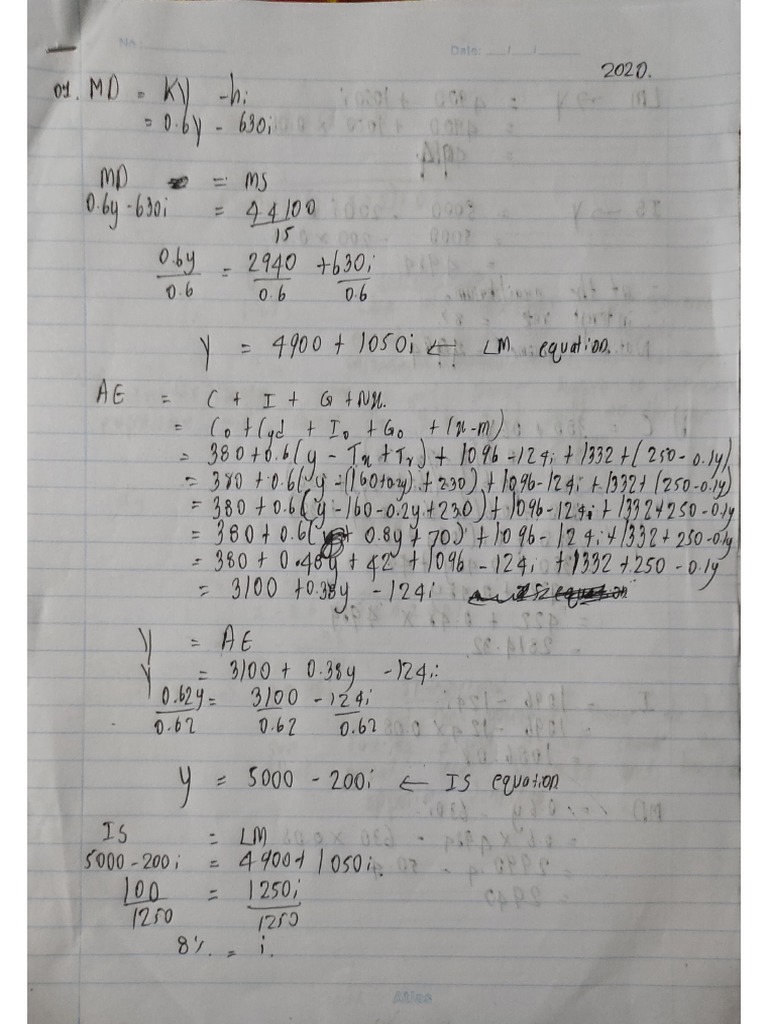 No:
Date: / /
2020.
01. MD = Ky - hi
= 0.6y - 630i
MD = MS
0.6y - 630i = 44100/15
0.6y/0.6 = 2940/0.6 + 630i/0.6
y = 4900 + 1050i ← LM equation.
AE = C + I + G + Nx.
= C0 + Cyd + I0 + G0 + (x-m)
= 380 + 0.6(y - Tx + Tr) + 1096 - 124i + 1332 + (250 - 0.1y)
= 380 + 0.6(y - (160+0.2y) + 230) + 1096 - 124i + 1332 + (250 - 0.1y)
= 380 + 0.6(y - 160 - 0.2y + 230) + 1096 - 124i + 1332 + 250 - 0.1y
= 380 + 0.6( 0.8y + 70) + 1096 - 124i + 1332 + 250 - 0.1y
= 380 + 0.48y + 42 + 1096 - 124i + 1332 + 250 - 0.1y
= 3100 + 0.38y - 124i
y = AE
y = 3100 + 0.38y - 124i
0.62y/0.62 = 3100/0.62 - 124i/0.62
y = 5000 - 200i ← IS equation
IS = LM
5000 - 200i = 4900 + 1050i
100/1250 = 1250i/1250
8% = i.
Atlas